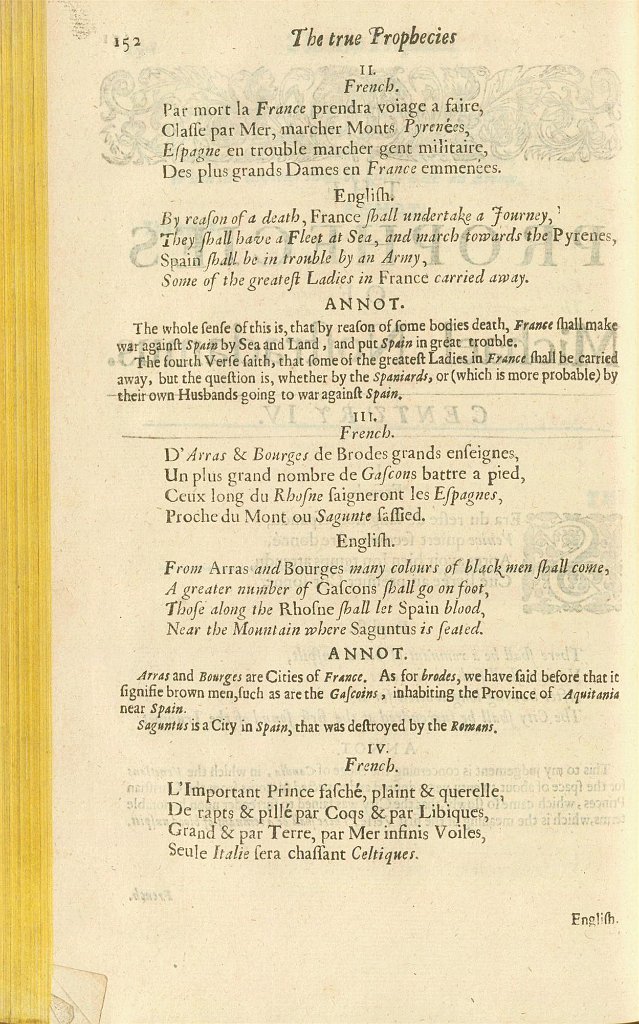 152 The true Prophecies
II.
French.
Par mort la France prendra voiage a faire,
Claſſe par Mer, marcher Monts Pyrenées,
Eſpagne en trouble marcher gent militaire,
Des plus grands Dames en France emmenées.
Engliſh.
By reaſon of a death, France ſhall undertake a Journey,
They ſhall have a Fleet at Sea, and march towards the Pyrenes,
Spain ſhall be in trouble by an Army,
Some of the greateſt Ladies in France carried away.
ANNOT.
The whole ſenſe of this is, that by reaſon of ſome bodies death, France ſhall make
war againſt Spain by Sea and Land, and put Spain in great trouble.
The fourth Verſe ſaith, that ſome of the greateſt Ladies in France ſhall be carried
away, but the queſtion is, whether by the Spaniards, or (which is more probable) by
their own Husbands going to war againſt Spain.
III.
French.
D'Arras & Bourges de Brodes grands enſeignes,
Un plus grand nombre de Gaſcons battre a pied,
Ceux long du Rhoſne ſaigneront les Eſpagnes,
Proche du Mont ou Sagunte ſaſſied.
Engliſh.
From Arras and Bourges many colours of black men ſhall come,
A greater number of Gaſcons ſhall go on foot,
Thoſe along the Rhoſne ſhall let Spain blood,
Near the Mountain where Saguntus is ſeated.
ANNOT.
Arras and Bourges are Cities of France. As for brodes, we have ſaid before that it
ſignifie brown men, ſuch as are the Gaſcoins, inhabiting the Province of Aquitania
near Spain.
Saguntus is a City in Spain, that was deſtroyed by the Romans.
IV.
French.
L'Important Prince faſché, plaint & querelle,
De rapts & pillé par Coqs & par Libiques,
Grand & par Terre, par Mer infinis Voiles,
Seule Italie ſera chaſſant Celtiques.
Engliſh.